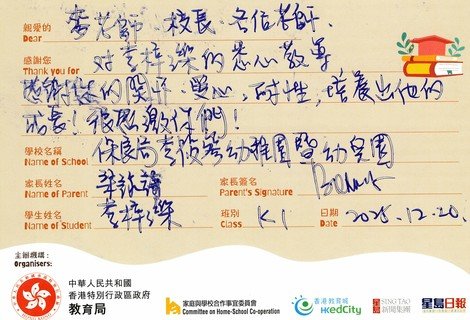 親愛的 麥老師、校長、各位老師,
Dear
感謝您 對 梓 的悉心教導,
Thank you for
感謝 的關 愛心,耐性,培養出他的
成長!很感激你們!
學校名稱 保良局 幼稚園暨幼兒園
Name of School
家長姓名 家長簽名
Name of Parent Parent's Signature
學生姓名 梓 班別 日期
Name of Student Class K1 Date 2025.12.20.
主辦機構:
Organisers:
中華人民共和國
香港特別行政區政府
教育局
家庭與學校合作事宜委員會
Committee on Home-School Co-operation
香港教育城
HKedCity
星島 SING TAO
新聞集團
星島日報